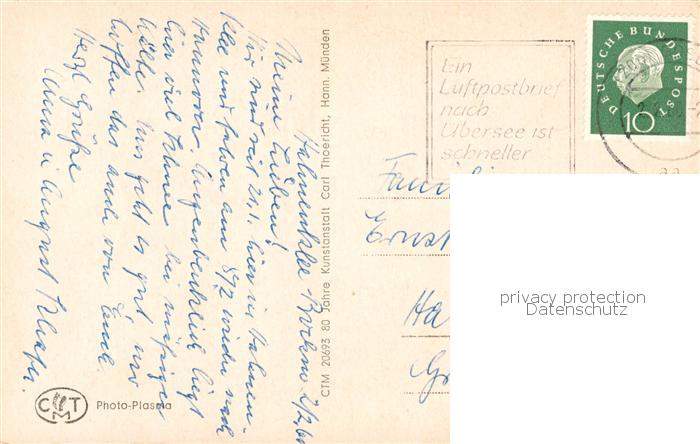 Hahnenklee-Bockswiese 2/2.60
Meine Lieben!
Wir sind seit 21.1. hier in Hahnen-
klee und fahren am 8/2 wieder nach
Hannover. Augenblicklich liegt
hier viel Schnee bei mässiger
Kälte. Uns geht es gut und
hoffen das auch von Euch.
Herzl. Grüße
Anna u. August
CTM 20693 80 Jahre Kunstanstalt Carl Thoericht, Hann. Münden
CTM
Photo-Plasma
Ein
Luftpostbrief
nach
Übersee ist
schneller
DEUTSCHE BUNDESPOST
10
Famili
Ernst
Ha
privacy protection
Datenschutz